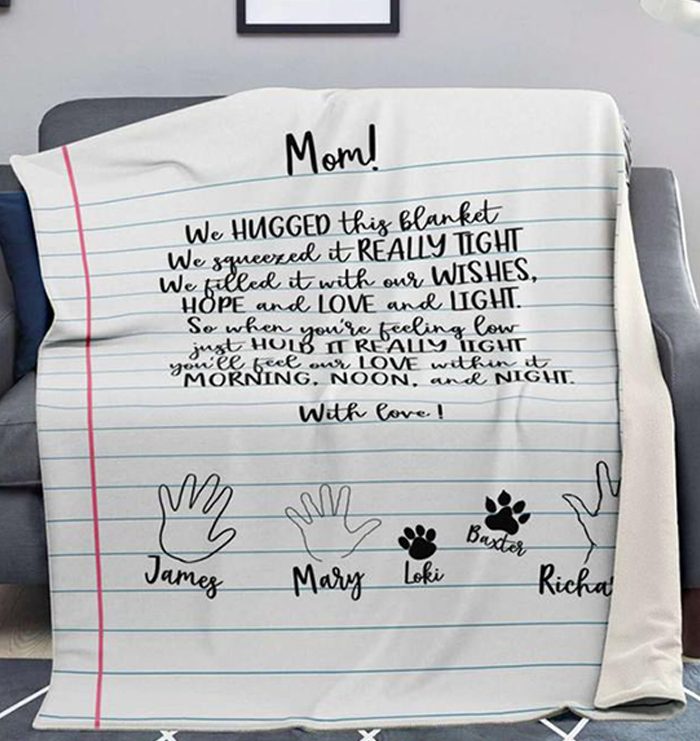 Mom!
We HUGGED this blanket
We squeezed it REALLY TIGHT
We filled it with our WISHES,
HOPE and LOVE and LIGHT.
So when you're feeling low
just HOLD IT REALLY TIGHT
you'll feel our LOVE within it
MORNING, NOON, and NIGHT.
With love!
James Mary Loki Baxter Richa